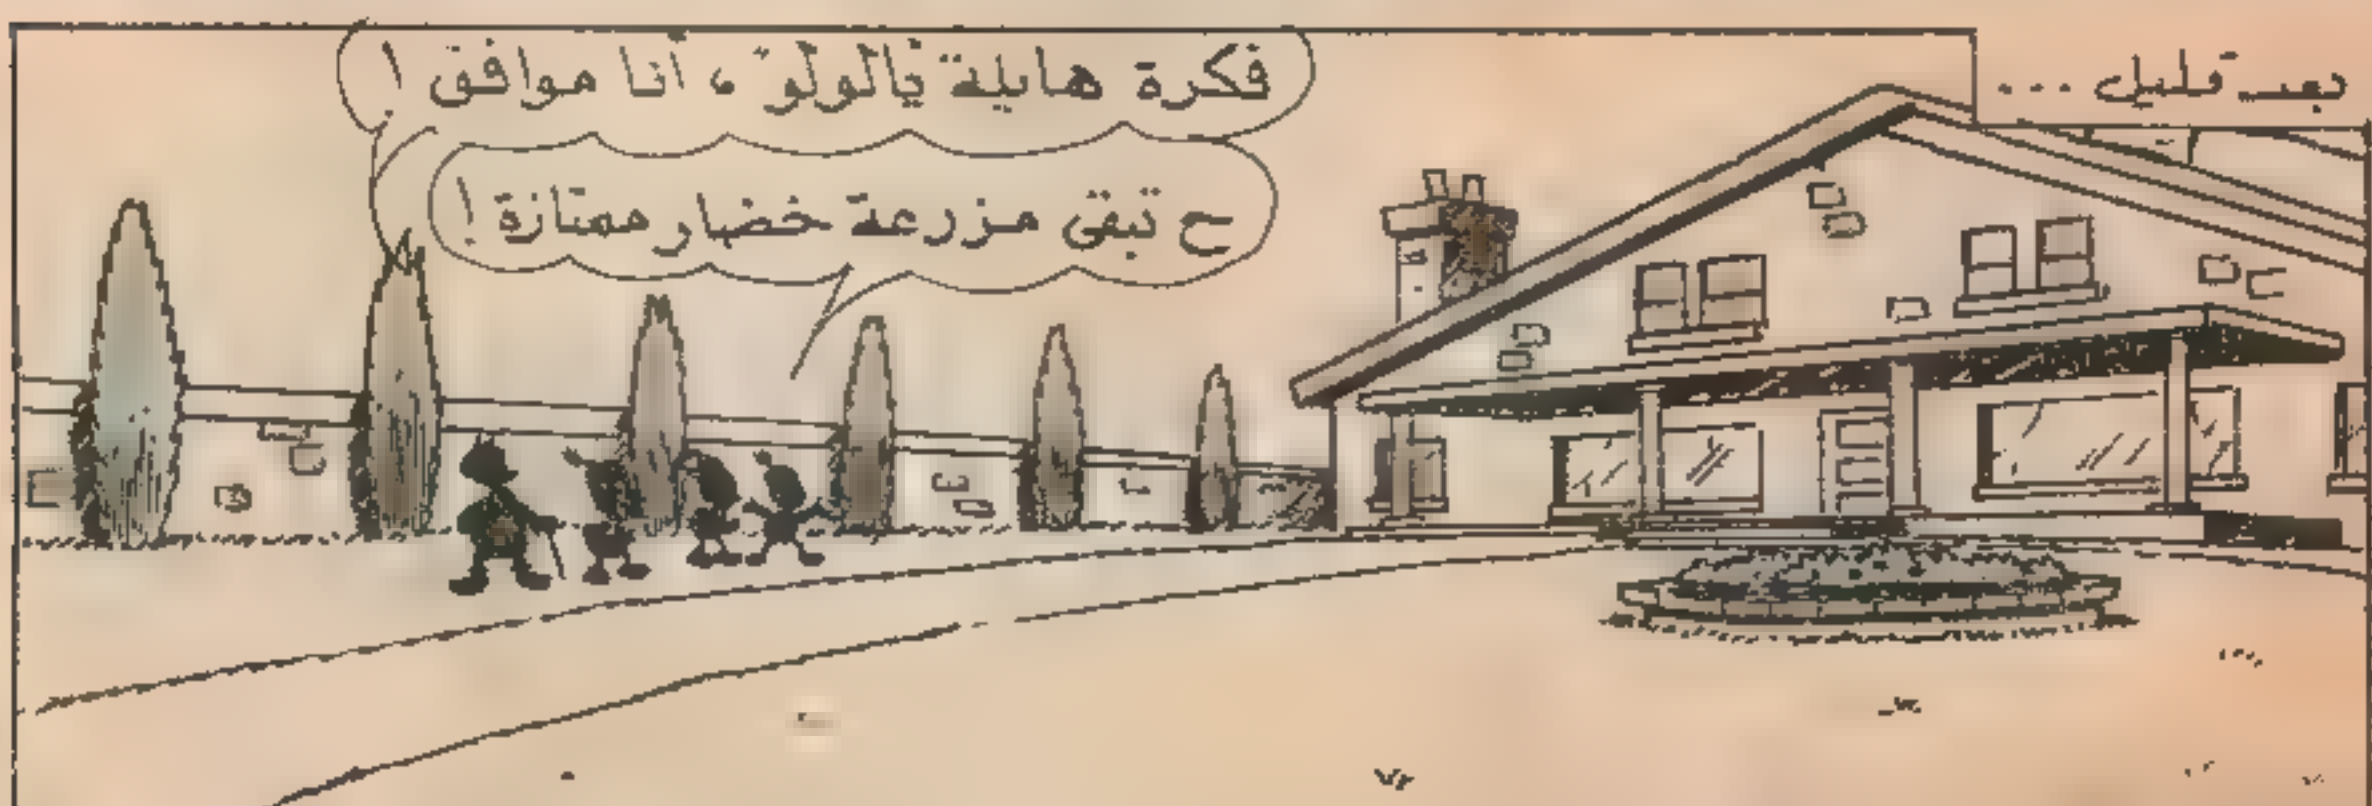 بعد قليل ...
فكرة هايلة يالولو ، أنا موافق !
ح تبقى مزرعة خضار ممتازة !